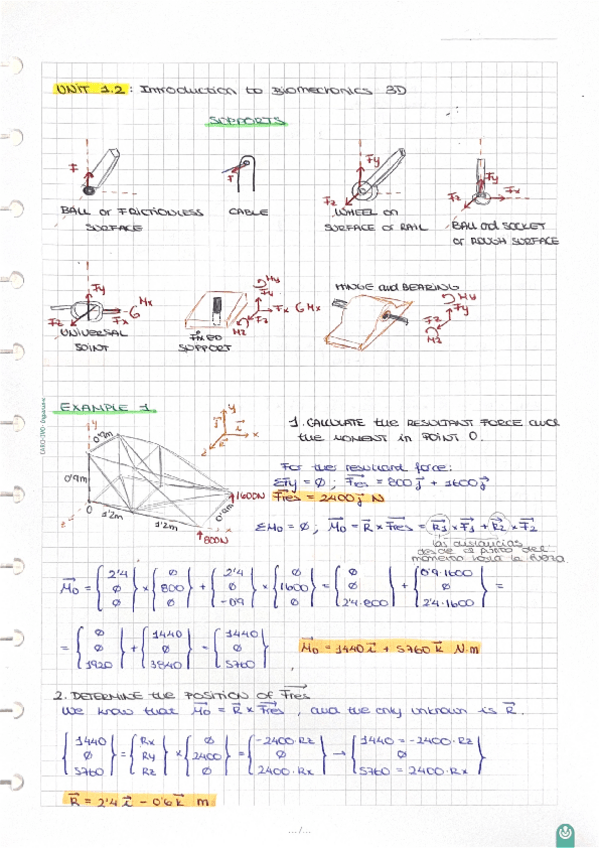 UNIT 1.2: Introduction to Biomechanics 3D
SUPPORTS
F
F
Fy
Fz
Fy
Fx
Fz
BALL or FRICTIONLESS SURFACE
CABLE
WHEEL on SURFACE or RAIL
BALL and SOCKET or ROUGH SURFACE
Fy
Fx
Mx
Fz
UNIVERSAL JOINT
My
Fy
Fx
Mx
Fz
Mz
FIXED SUPPORT
HINGE and BEARING
My
Fy
Fz
Mz
EXAMPLE 1
y
0'9m
0'9m
0
1'2m
1'2m
0'9m
1600N
800N
x
z
y
j
i
x
k
z
1. CALCULATE the RESULTANT FORCE and the MOMENT in POINT O.
For the resultant force:
ΣFy = Ø ; Fres = 800j + 1600j
Fres = 2400j N
ΣMo = Ø ; Mo = R × Fres = R1 × F1 + R2 × F2
las distancias
desde el punto del
momento hasta la fuerza
Mo = {2'4 Ø Ø} × {Ø 800 Ø} + {2'4 Ø -0'9} × {Ø 1600 Ø} = {Ø Ø 2'4·800} + {0'9·1600 Ø 2'4·1600} =
= {Ø Ø 1920} + {1440 Ø 3840} = {1440 Ø 5760}
Mo = 1440 i + 5760 k N·m
2. DETERMINE the POSITION of Fres
We know that Mo = R × Fres, and the only unknown is R.
{1440 Ø 5760} = {Rx Ry Rz} × {Ø 2400 Ø} = {-2400·Rz Ø 2400·Rx} → {1440 = -2400·Rz Ø 5760 = 2400·Rx}
R = 2'4 i - 0'6 k m
.../...